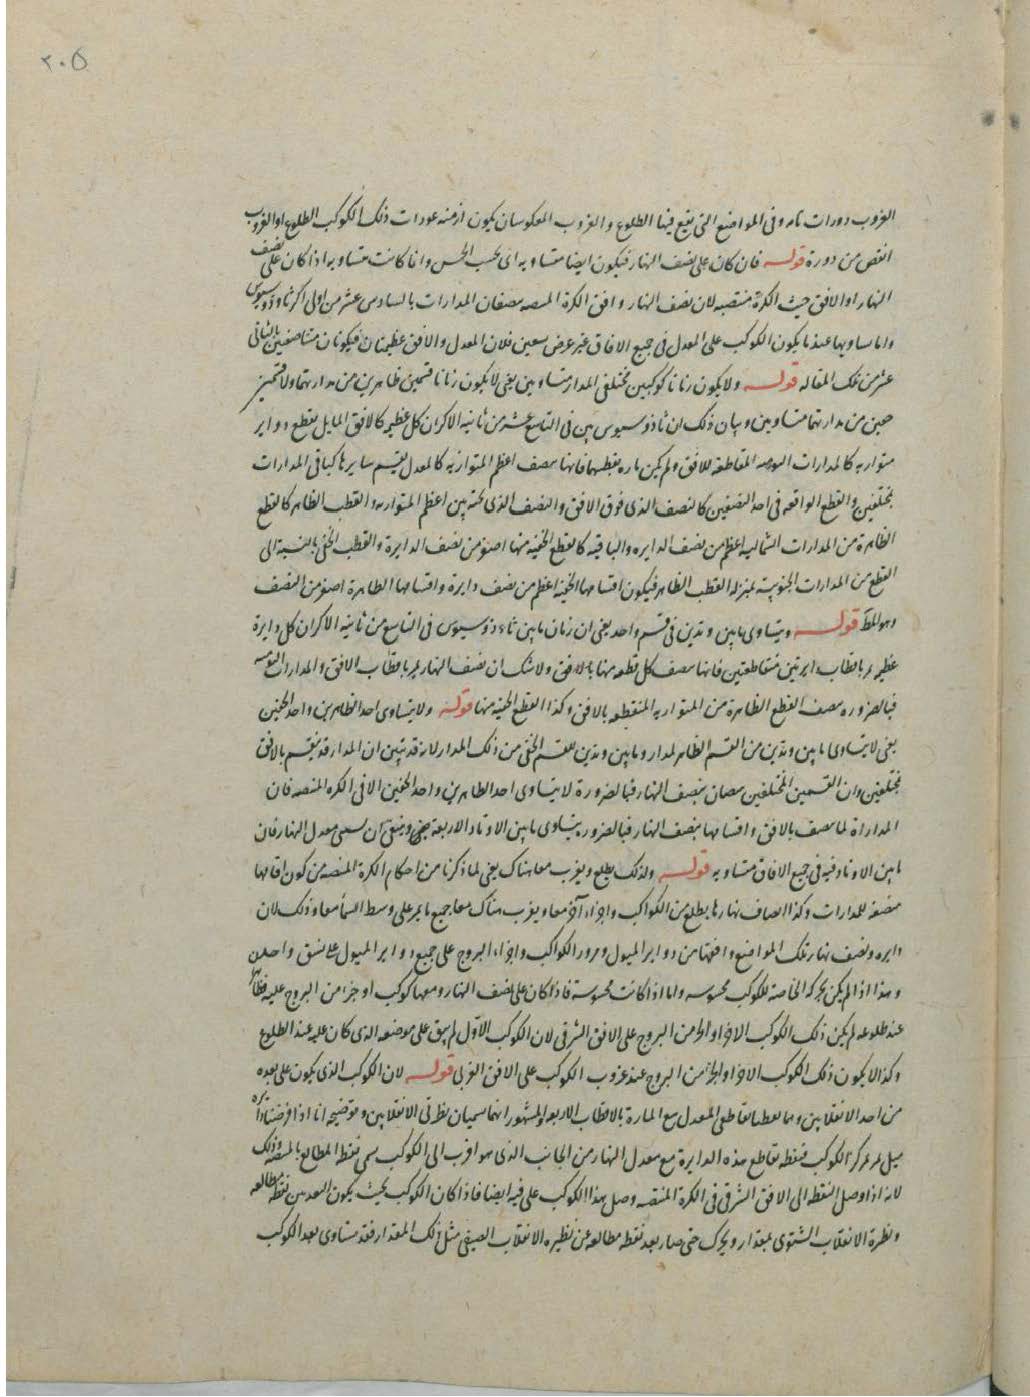 ٢٠٥
الغروب دورات تامه وفى المواضع التى يقع فيها الطلوع والغروب المعكوسان يكون ازمنه عودات ذلك الكوكب الطلوع او الغروب
انقص من دورة قوله فان كان على نصف النهار فيكون ايضا متساويه اى بحسب الحس وانما كانت متساويه اذا كان على نصف
النهار او الافق حيث الكرة منتصبه لان نصف النهار وافق الكرة المنتصبه ينصفان المدارات بالسادس عشر من اولى اكر ثاوذوسيوس
واما تساويها عندما يكون الكوكب على المعدل فى جميع الافاق غير عرض تسعين فلان المعدل والافق عظيمتان فيكونان متناصفين بالثانى
عشر من تلك المقاله قوله ولا يكون زمانا كوكبين مختلفى المدار متساويين يعنى لا يكون زمانا قسمين ظاهرين من مداريهما ولا قسمين
خفيين من مداريهما متساويين وبيان ذلك ان ثاذوسيوس بين فى التاسع عشر من ثانيه الاكر ان كل عظيمه كالافق المايل تقطع دواير
متوازيه كالمدارات اليوميه المقاطعه للافق ولم يكن ماره بقطبيها فانها تنصف اعظم المتوازيه كالمعدل وتقسم سايرها كباقى المدارات
بمختلفين والقطع الواقعه فى احد النصفين كالنصف الذى فوق الافق والنصف الذى تحته بين اعظم المتوازيه والقطب الظاهر كالقطع
الظاهرة من المدارات الشماليه اعظم من نصف الدايره والباقيه كالقطع الخفيه منها اصغر من نصف الدايرة والقطب الخفى بالنسبة الى
القطع من المدارات الجنوبيه بمنزله القطب الظاهر فيكون اقسامها الخفيه اعظم من نصف دايرة واقسامها الظاهرة اصغر من النصف
وهو المط قوله ويتساوى ما بين وتدين فى قسم واحد يعنى ان زمان ما بين ثاوذوسيوس فى التاسع من ثانيه الاكر ان كل دايرة
عظيمه تمر باقطاب دايرتين متقاطعتين فانها تنصف كل قطعه منها بالافق ولا شك ان نصف النهار يمر باقطاب الافق والمدار اليوميه
فبالضروره ينصف القطع الظاهرة من المتوازيه المنقطعه بالافق وكذا القطع الخفيه منها قوله ولا يتساوى احد الظاهرين واحد الخفيين
يعنى لا يتساوى ما بين وتدين من القسم الظاهر لمدار وما بين وتدين للقسم الخفى من ذلك المدار لانه قد تبين ان المدار قد ينقسم بالافق
بمختلفين وان القسمين المختلفين ينصفان بنصف النهار فبالضرورة لا يتساوى احد الظاهرين واحد الخفيين الا فى الكره المنتصبه فان
المداراة لما ينصف بالافق واقسامها بنصف النهار فبالضروره يتساوى ما بين الاوتاد الاربعة وينبغى ان يستثنى معدل النهار فان
ما بين الاوتاد فيه فى جميع الافاق متساويه قوله ولذلك يطلع ويغرب معا هناك يعنى لما ذكرنا من احكام الكرة المنتصبه من كون افاقها
منصفة للمدارات وكذا انصاف نهارها يطلع من الكواكب واجزاء اخر معا ويغرب هناك معا جميع ما يمر على وسط السما معا وذلك لان
دايره ونصف نهار تلك المواضع وافقها من دواير الميول ومرور الكواكب واجزاء البروج على جميع دواير الميول على نسق واحد
وهذا اذا لم يكن الحركة الخاصة للكوكب محسوسه واما اذا كانت محسوسة فاذا كان على نصف النهار ومعها كوكب او جزء من البروج عليه فظاهر
عند طلوعه لم يكن ذلك الكوكب الاخر او الجزء من البروج على الافق الشرقى لان الكوكب الاول لم يبق على موضعه الذى كان عليه عند الطلوع
وكذا لا يكون ذلك الكوكب الاخر او الجزء من البروج عند غروب الكوكب على الافق الغربى قوله لان الكوكب الذى يكون على بعده
من احد الانقلابين وهما نقطتا تقاطع المعدل مع المارة بالاقطاب الاربعه والمشهور انهما يسميان نظيرتى الانقلابين وتوضيحه انا اذا فرضنا دائرة
ميل تمر بمركز الكوكب فنقطه تقاطع هذه الدايرة مع معدل النهار من الجانب الذى هو اقرب الى الكوكب يسمى نقطه المطالع بالمنتصبه وذلك
لانه اذا وصل النقطه الى الافق الشرقى فى الكرة المنتصبه وصل هذا الكوكب على فيه ايضا فاذا كان الكوكب بحيث يكون البعد بين نقطه مطالعه
ونظيرة الانقلاب الشتوى بمقدار وتحرك حتى صار بعد نقطه مطالعه عن نظيره الانقلاب الصيفى مثل ذلك المقدار فقد تساوى بعد الكوكب